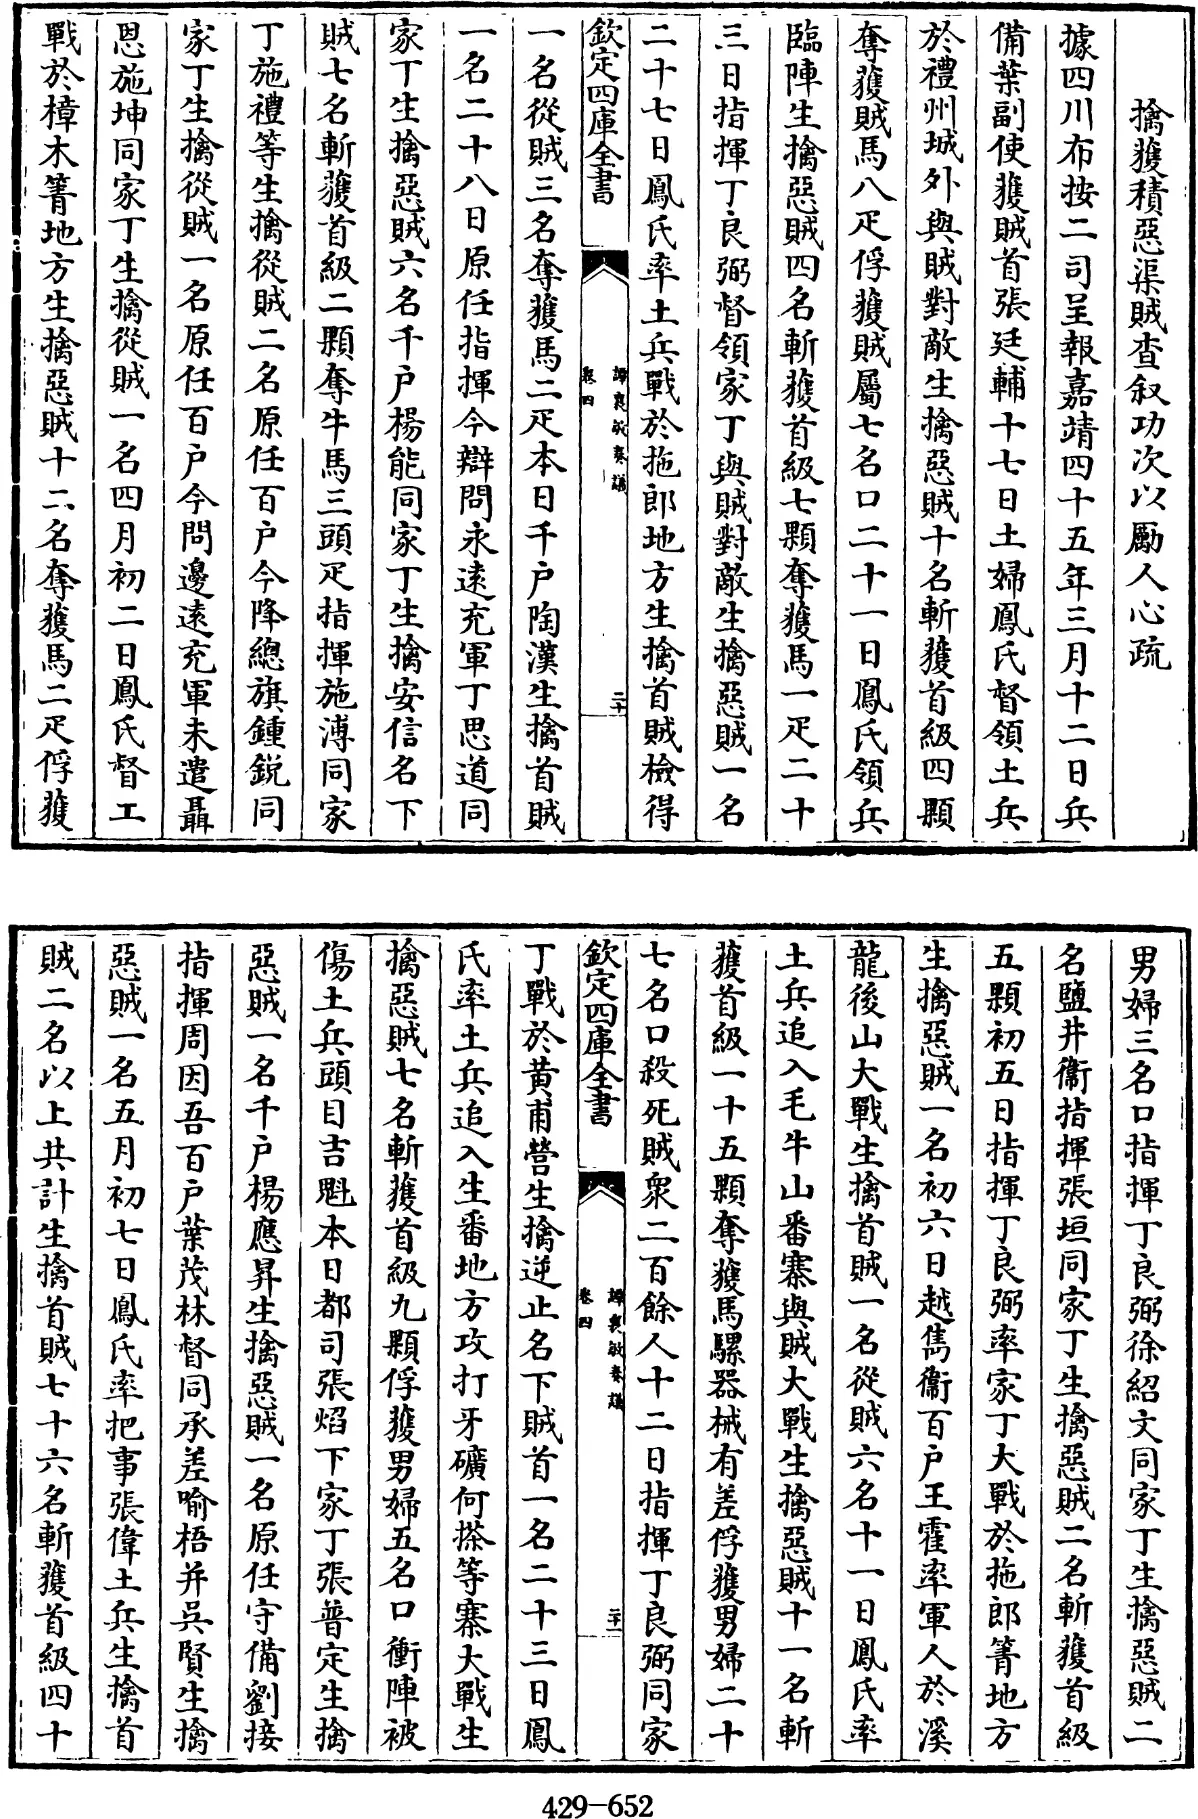 擒獲積惡渠賊查叙功次以勵人心疏
據四川布按二司呈報嘉靖四十五年三月十二日兵
備葉副使獲賊首張廷輔十七日土婦鳳氏督領土兵
於禮州城外與賊對敵生擒惡賊十名斬獲首級四顆
奪獲賊馬八疋俘獲賊屬七名口二十一日鳳氏領兵
臨陣生擒惡賊四名斬獲首級七顆奪獲馬一疋二十
三日指揮丁良弼督領家丁與賊對敵生擒惡賊一名
二十七日鳳氏率土兵戰於拖郎地方生擒首賊檢得
欽定四庫全書
譚襄敏奏議
卷四
二十
一名從賊三名奪獲馬二疋本日千户陶漢生擒首賊
一名二十八日原任指揮今辯問永遠充軍丁思道同
家丁生擒惡賊六名千户楊能同家丁生擒安信名下
賊七名斬獲首級二顆奪牛馬三頭疋指揮施溥同家
丁施禮等生擒從賊二名原任百户今降總旗鍾鋭同
家丁生擒從賊一名原任百户今問邊遠充軍未遣聶
恩施坤同家丁生擒從賊一名四月初二日鳳氏督工
戰於樟木箐地方生擒惡賊十二名奪獲馬二疋俘獲
男婦三名口指揮丁良弼徐紹文同家丁生擒惡賊二
名鹽井衞指揮張垣同家丁生擒惡賊二名斬獲首級
五顆初五日指揮丁良弼率家丁大戰於拖郎箐地方
生擒惡賊一名初六日越雋衞百户王霍率軍人於溪
龍後山大戰生擒首賊一名從賊六名十一日鳳氏率
土兵追入毛牛山番寨與賊大戰生擒惡賊十一名斬
獲首級一十五顆奪獲馬騾器械有差俘獲男婦二十
七名口殺死賊衆二百餘人十二日指揮丁良弼同家
欽定四庫全書
譚襄敏奏議
卷四
二十一
丁戰於黄甫營生擒逆止名下賊首一名二十三日鳳
氏率土兵追入生番地方攻打牙礦何搽等寨大戰生
擒惡賊七名斬獲首級九顆俘獲男婦五名口衝陣被
傷土兵頭目吉魁本日都司張焰下家丁張普定生擒
惡賊一名千户楊應昇生擒惡賊一名原任守備劉接
指揮周因吾百户葉茂林督同承差喻梧并吳賢生擒
惡賊一名五月初七日鳳氏率把事張偉土兵生擒首
賊二名以上共計生擒首賊七十六名斬獲首級四十
429-652